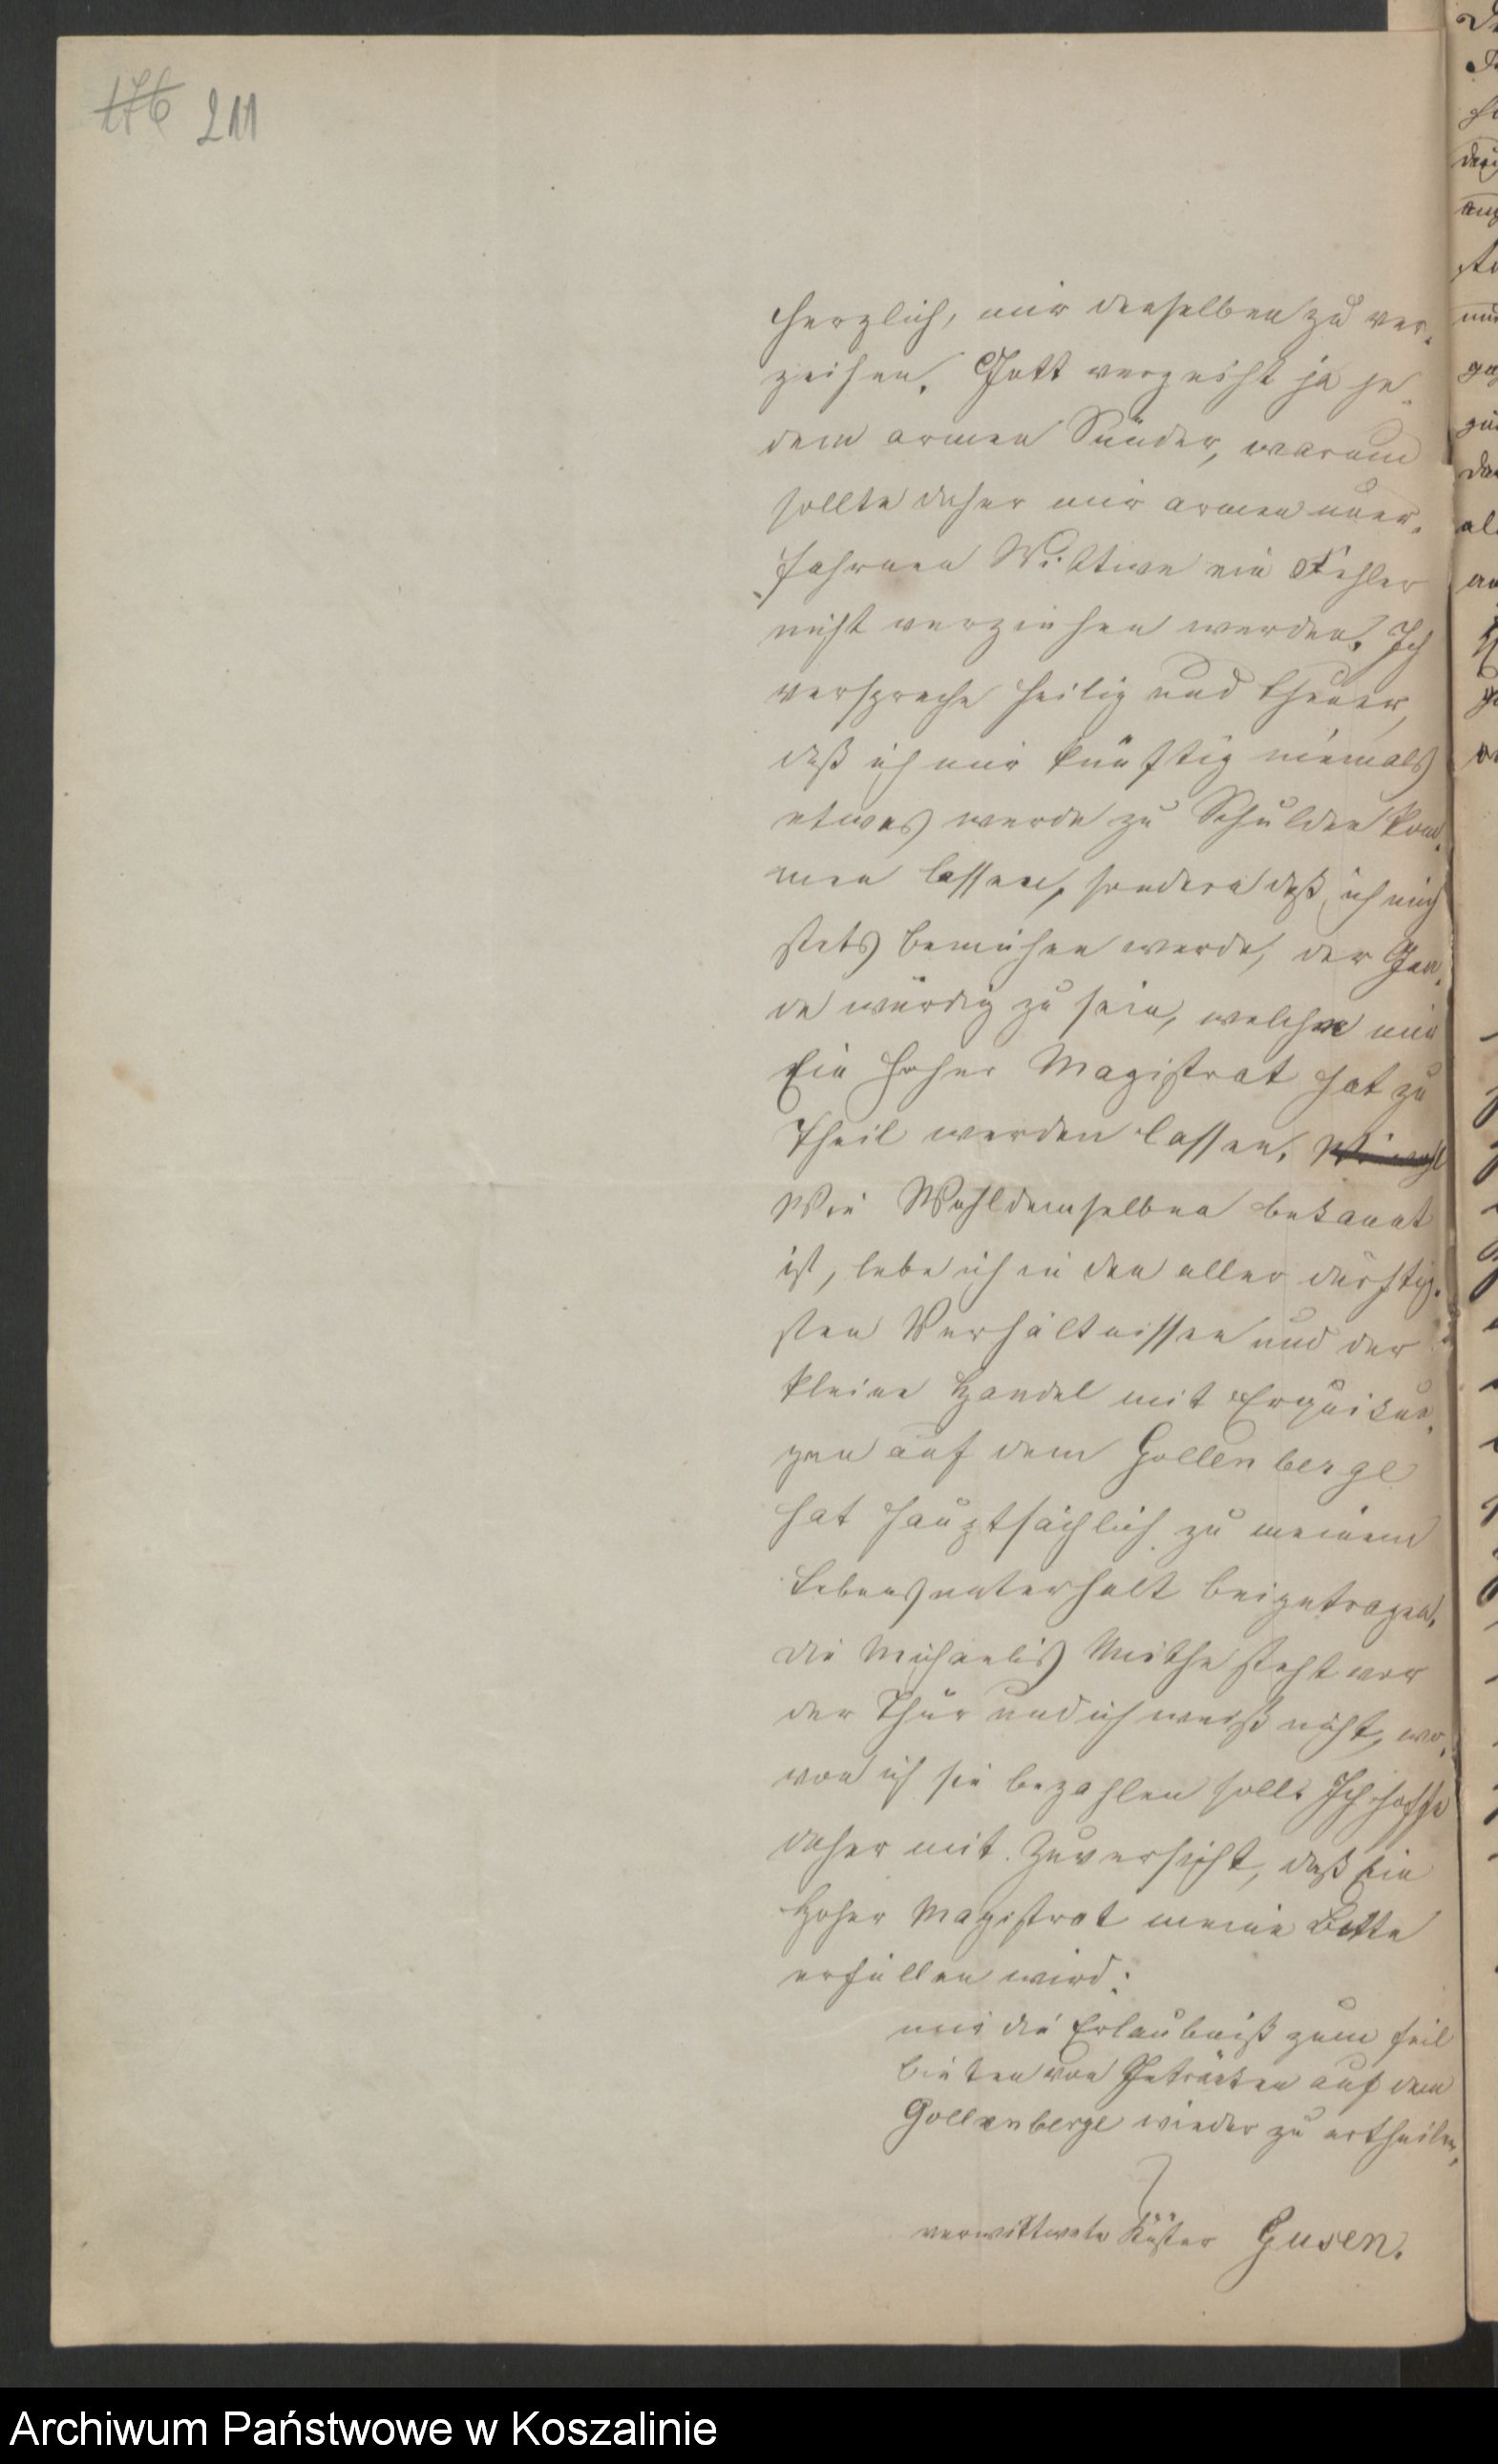 176 211
herzlich, mir denselben zu ver-
zeihen. Gott vergeiht ja je-
dem armen Sünder, warum
sollte daher mir armen uner-
fahrnen Wittwe ein Fehler
nicht verziehen werden. Ich
verspreche heilig und theuer,
daß ich mir künftig niemals
etwas werde zu Schulden kom-
men lassen, sondern daß ich mich
stets bemühen werde, der Gna-
de würdig zu sein, welche mir
Ein hoher Magistrat hat zu
Theil werden lassen.
Wie Wohldemselben bekannt
ist, lebe ich in den aller dürftig-
sten Verhältnissen und der
kleine Handel mit Erquikun-
gen auf dem Gollenberge
hat hauptsächlich zu meinem
Lebensunterhalt beigetragen.
die Michaelis Miethe steht vor
der Thür und ich weiß nicht, wo-
von ich sie bezahlen soll. Ich hoffe
daher mit Zuversicht, daß Ein
Hoher Magistrat meine Bitte
erfüllen wird:
mir die Erlaubniß zum feil
bieten von Getränken auf dem
Gollenberge wieder zu ertheilen,
verwittwete Küster Gusen.
Archiwum Państwowe w Koszalinie